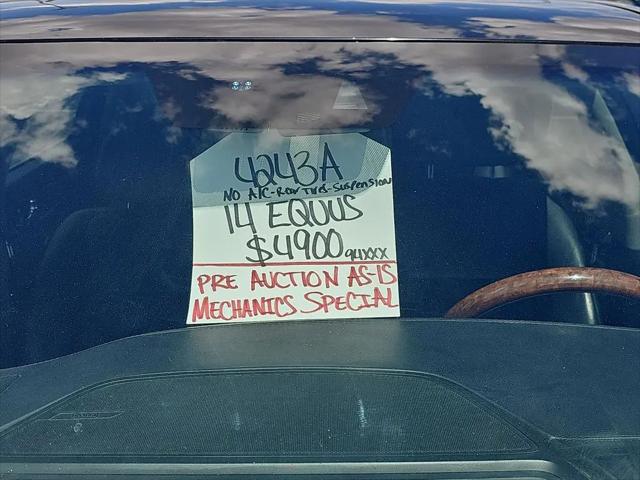 4243A
NO A/C-ROW TIRES-SUSPENSION
14 EQUUS
$4900 94XXX
PRE AUCTION AS-IS
MECHANICS SPECIAL